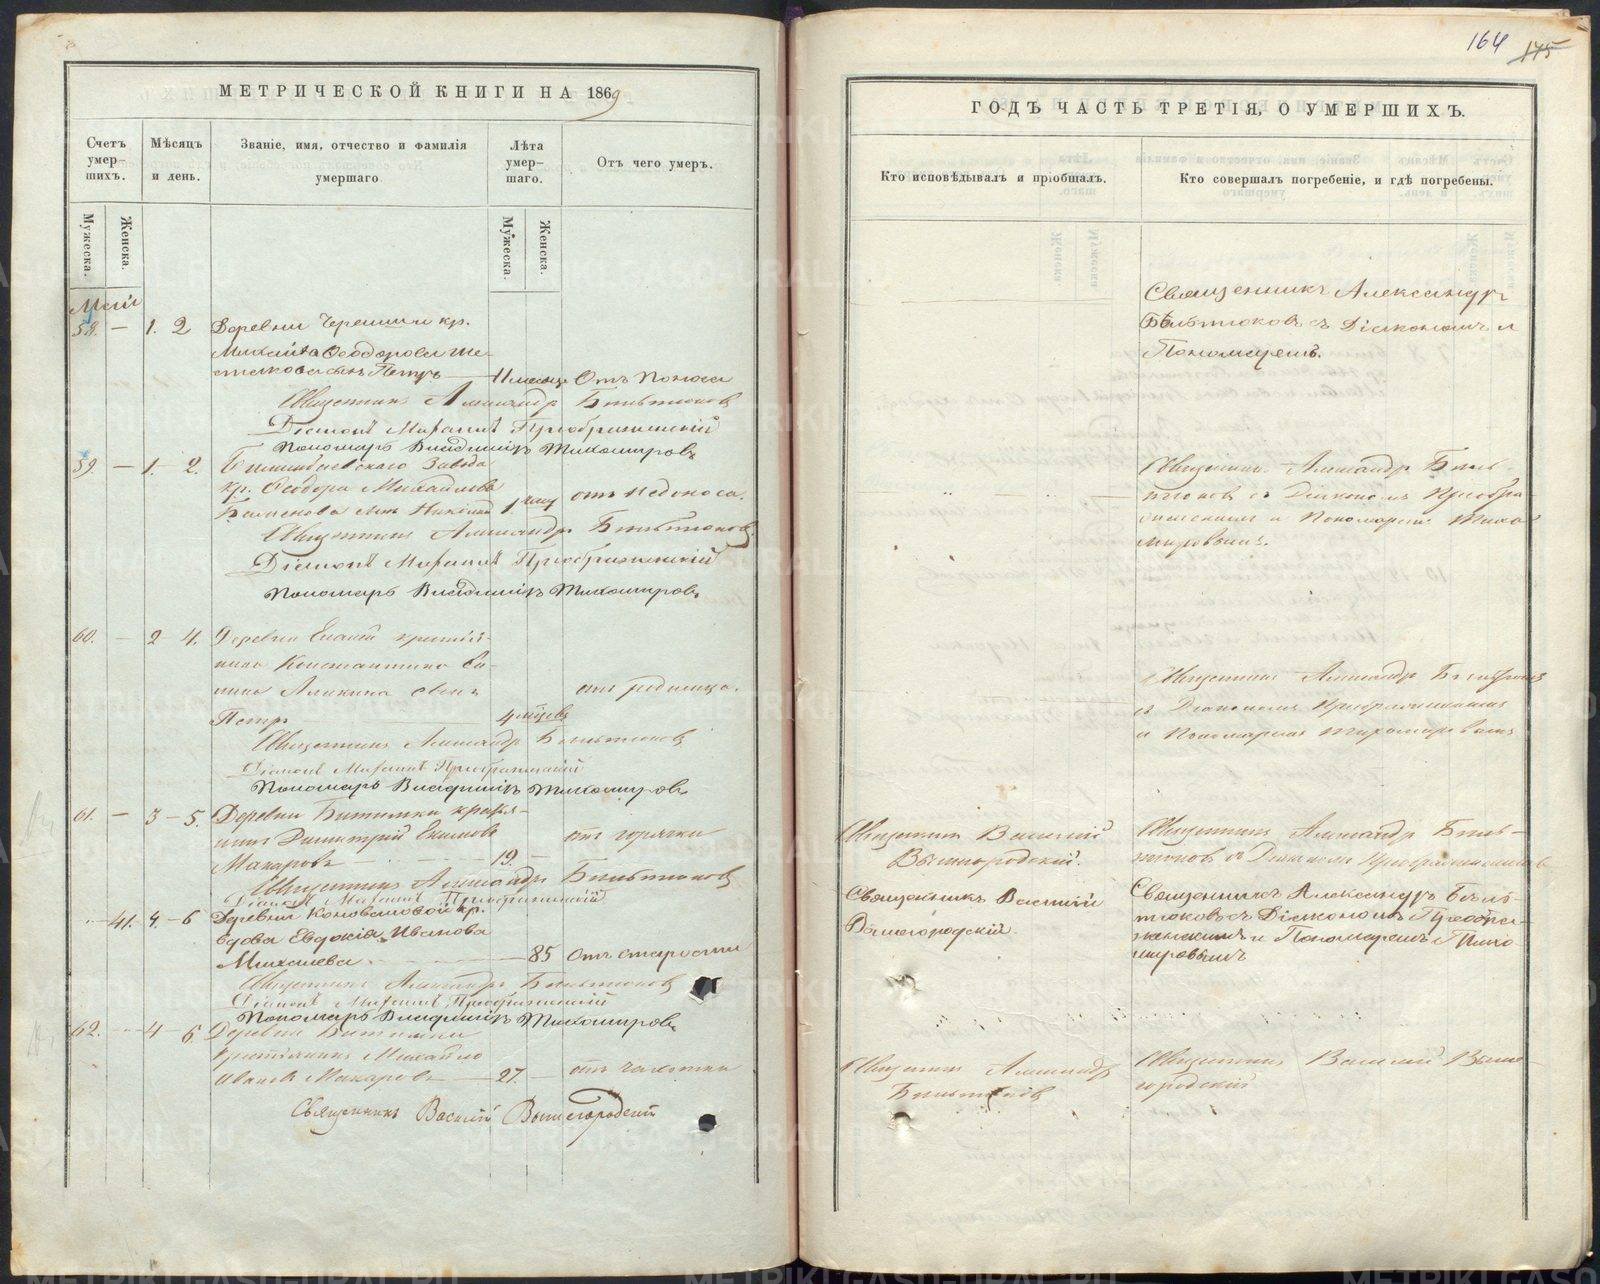 МЕТРИЧЕСКОЙ КНИГИ НА 1869
Счетъ умер-шихъ.
Мѣсяцъ и день.
Званіе, имя, отчество и фамилія умершаго
Лѣта умер-шаго.
Отъ чего умеръ.
Мужеска.
Женска.
Мужеска.
Женска.
Май
58. — 1. 2 Деревни Черемши кр.
Михаила Ѳеодорова Ше-
стакова сынъ Петръ — 11 месяц. Отъ поноса
Священникъ Александръ Бѣльтюковъ
Діаконъ Преображенскій
Пономарь Владимиръ Тихомировъ
59. — 1. 2. Билимбаевскаго Завода
кр. Ѳеодора Михайлова
сынъ Николай 1 часу отъ недоноса.
Священникъ Александръ Бѣльтюковъ
Діаконъ Преображенскій
Пономарь Владимиръ Тихомировъ.
60. — 2 4. Деревни крестья-
нина Константина
Аликина сынъ отъ родимца.
Петръ 4 мѣсяцев
Священникъ Александръ Бѣльтюковъ
Діаконъ Преображенскій
Пономарь Владимиръ Тихомировъ
61. — 3 — 5. Деревни Битимки крестья-
нинъ Димитрій Екимовъ отъ горячки
Макаровъ 19.
Священникъ Александръ Бѣльтюковъ
Діаконъ Преображенскій
41. 4. — 6 Деревни Коноваловой кр.
вдова Евдокія Иванова
85 Отъ старости
Священникъ Александръ Бѣльтюковъ
Діаконъ Преображенскій
Пономарь Владимиръ Тихомировъ
62. 4 — 6 Деревни Битимки
крестьянинъ Михайло
Ивановъ Макаровъ — 27. — отъ чахотки
Священникъ Василій Вышегородскій
164 145
ГОДЪ ЧАСТЬ ТРЕТІЯ, О УМЕРШИХЪ.
Кто исповѣдывалъ и пріобщалъ.
Кто совершалъ погребеніе, и гдѣ погребены.
Священникъ Александръ
Бѣльтюковъ съ Діакономъ и
Пономаремъ.
Священникъ Александръ Бѣль-
тюковъ съ Діакономъ Преобра-
женскимъ и Пономаремъ Тихо-
мировымъ.
Священникъ Александръ Бѣльтюковъ
съ Діакономъ Преображенскимъ
и Пономаремъ Тихомировымъ
Священникъ Василій
Вышегородскій.
Священникъ Александръ Бѣль-
тюковъ съ Діакономъ Преображенскимъ
Священникъ Василій
Вышегородскій.
Священникъ Александръ Бѣль-
тюковъ съ Діакономъ Преобра-
женскимъ и Пономаремъ Тихо-
мировымъ
Священникъ Александръ
Бѣльтюковъ
Священникъ Василій Выше-
городскій
METRIKI.GASO-URAL.RU